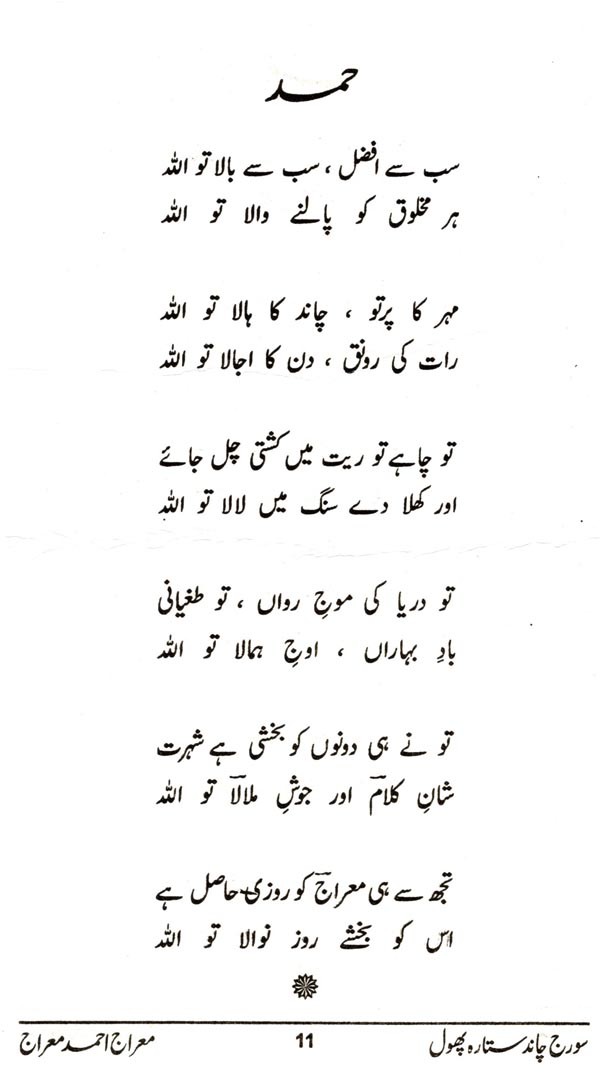 حمد
سب سے افضل ، سب سے بالا تو اللہ
ہر مخلوق کو پالنے والا تو اللہ
مہر کا پرتو ، چاند کا ہالا تو اللہ
رات کی رونق ، دن کا اجالا تو اللہ
تو چاہے تو ریت میں کشتی چل جائے
اور کھلا دے سنگ میں لالا تو اللہ
تو دریا کی موجِ رواں ، تو طغیانی
بادِ بہاراں ، اوجِ ہمالا تو اللہ
تو نے ہی دونوں کو بخشی ہے شہرت
شانِ کلامؔ اور جوشِ ملالاؔ تو اللہ
تجھ سے ہی معراجؔ کو روزی حاصل ہے
اس کو بخشے روز نوالا تو اللہ
سورج چاند ستارہ پھول
11
معراج احمد معراج